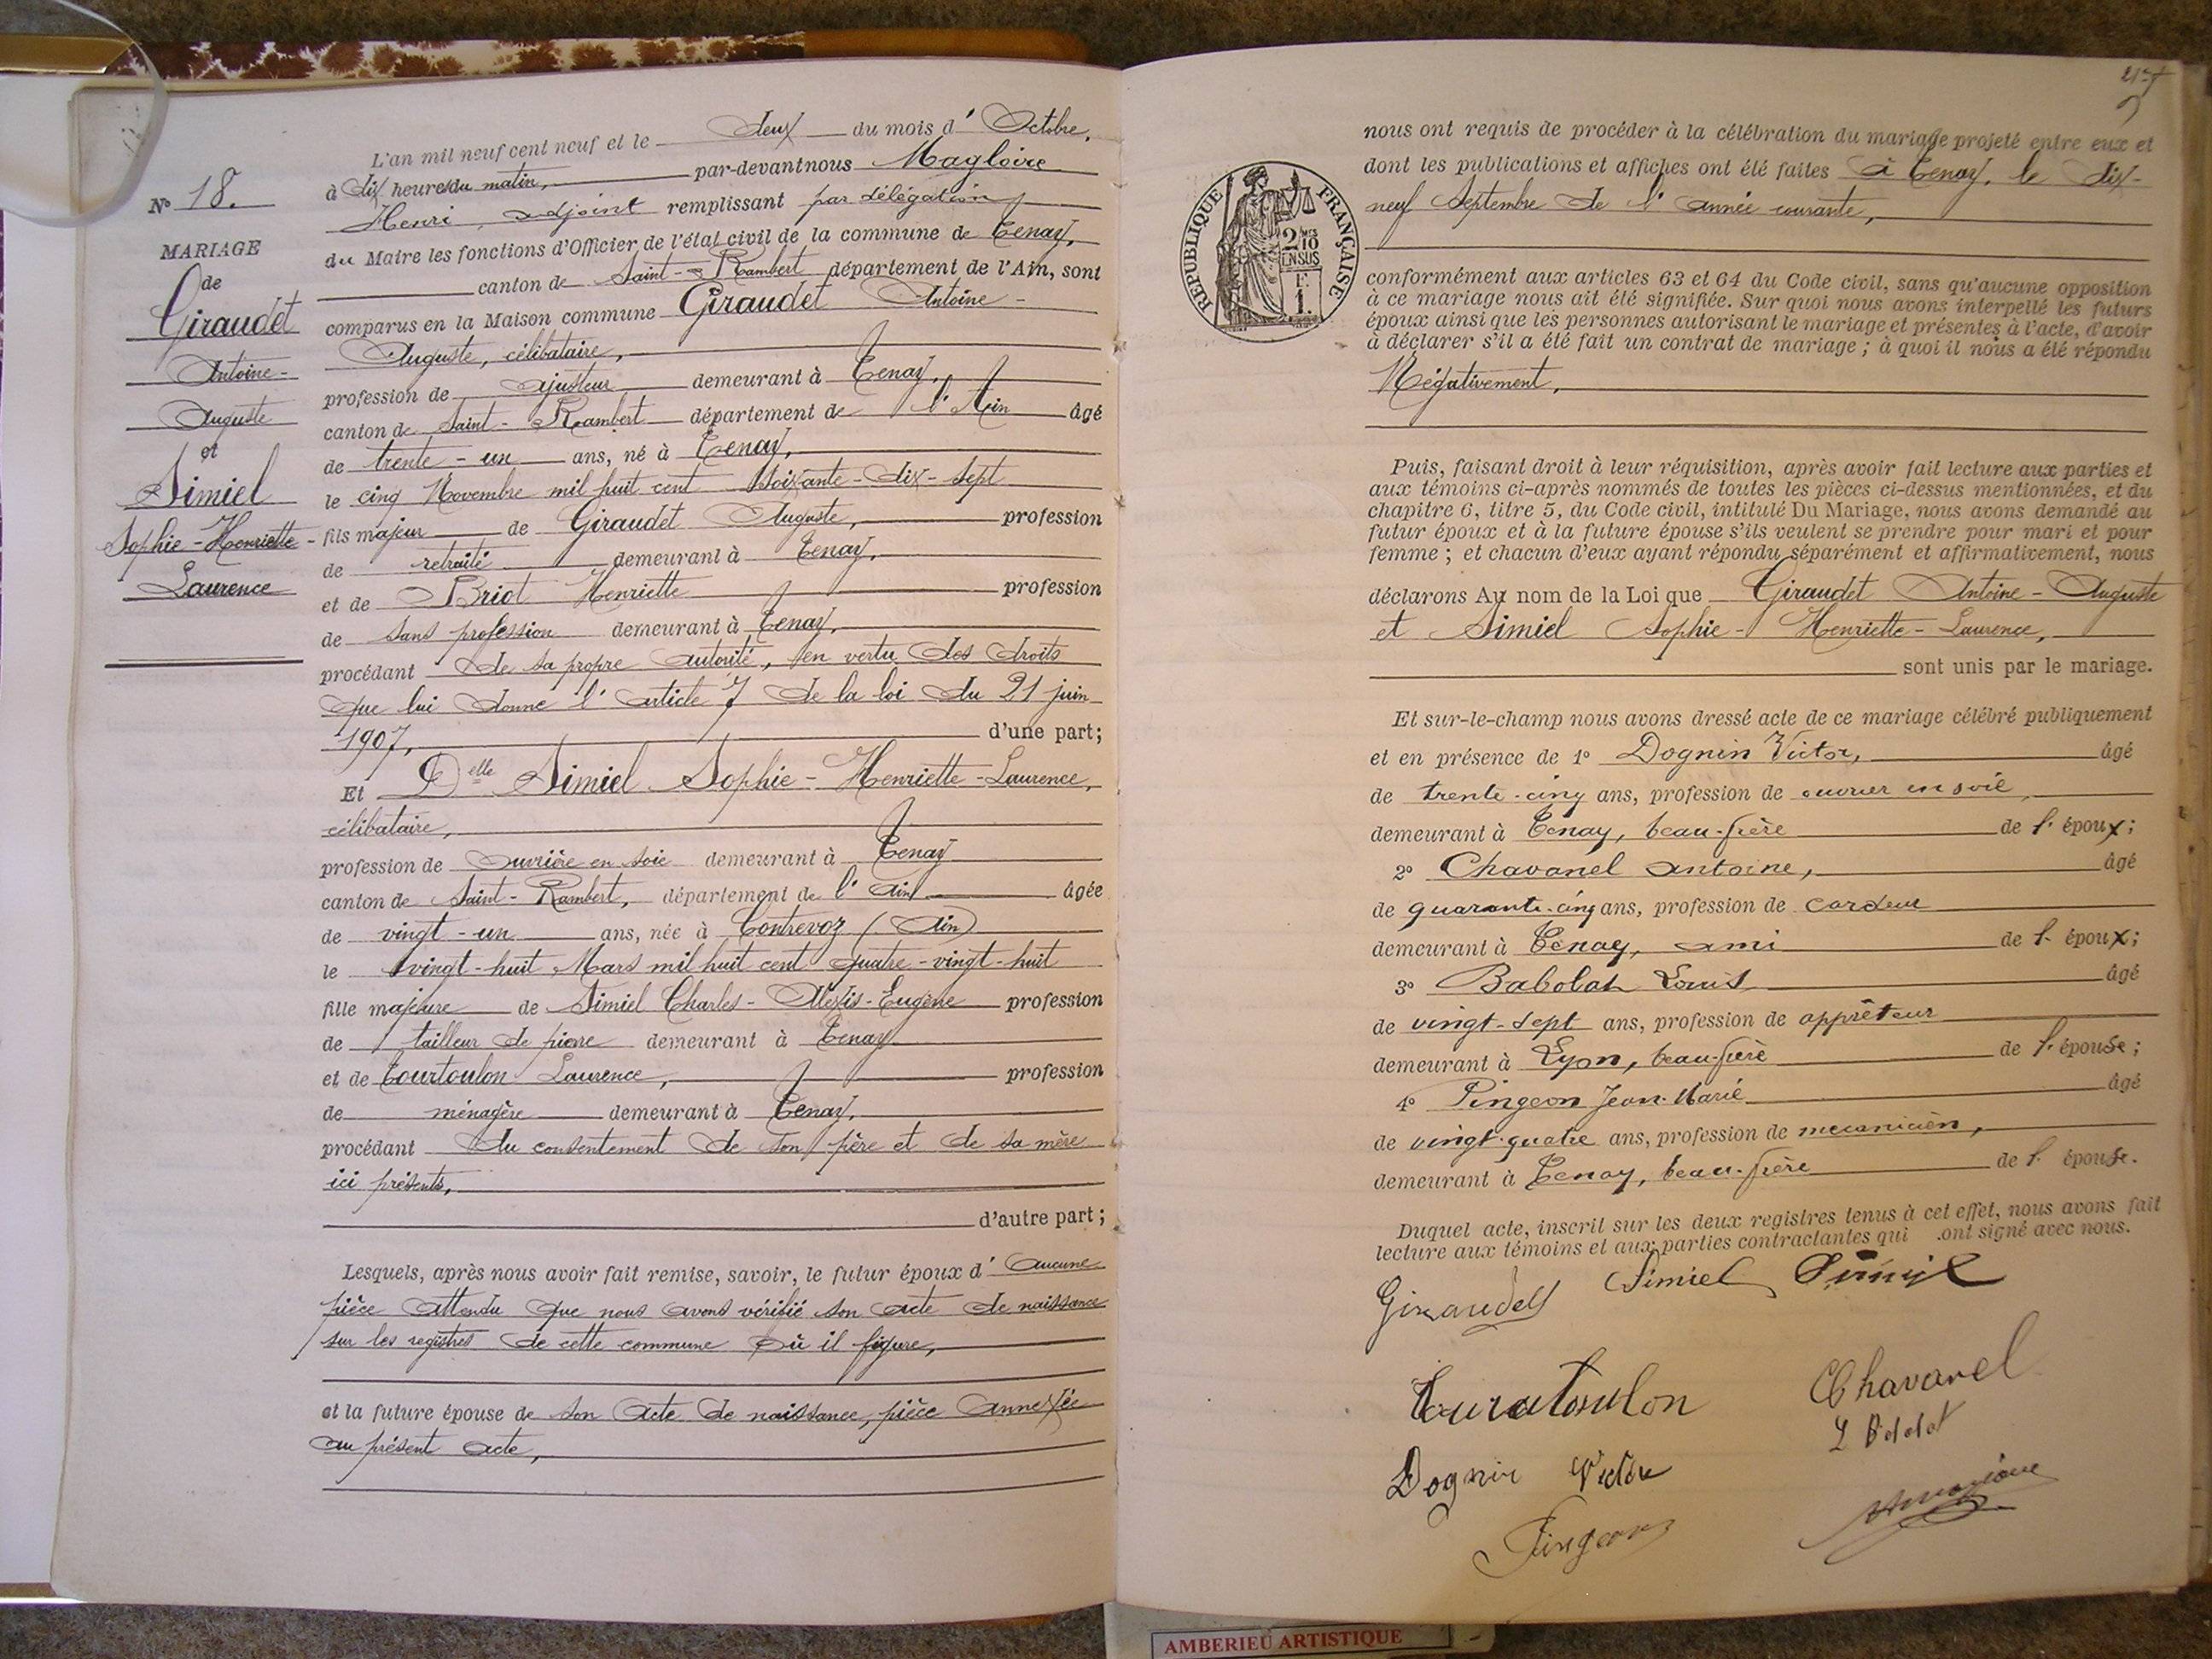 N° 18.
MARIAGE
de
Giraudet
Antoine-
Auguste
et
Simiel
Sophie-Henriette-
Laurence
L'an mil neuf cent neuf et le Deux du mois d' Octobre,
à dix heures du matin, par-devant nous Magloire
Henri, adjoint remplissant par délégation
du Maire les fonctions d'Officier de l'état civil de la commune de Tenay,
canton de Saint-Rambert département de l'Ain, sont
comparus en la Maison commune Giraudet Antoine-
Auguste, célibataire,
profession de ajusteur demeurant à Tenay,
canton de Saint-Rambert département de l'Ain âgé
de trente-un ans, né à Tenay,
le cinq Novembre mil huit cent soixante-dix-sept
fils majeur de Giraudet Auguste, profession
de retraité demeurant à Tenay,
et de Briot Henriette profession
de sans profession demeurant à Tenay,
procédant de sa propre autorité, en vertu des droits
que lui donne l'article 7 de la loi du 21 juin
1907, d'une part;
Et Delle Simiel Sophie-Henriette-Laurence,
célibataire,
profession de ouvrière en soie demeurant à Tenay
canton de Saint-Rambert, département de l'Ain âgée
de vingt-un ans, née à Contrevoz (Ain)
le vingt-huit Mars mil huit cent quatre-vingt-huit
fille majeure de Simiel Charles-Alexis-Eugène profession
de tailleur de pierre demeurant à Tenay
et de Tourtoulon Laurence, profession
de ménagère demeurant à Tenay,
procédant du consentement de son père et de sa mère
ici présents,
d'autre part;
Lesquels, après nous avoir fait remise, savoir, le futur époux d' aucune
pièce attendu que nous avons vérifié son acte de naissance
sur les registres de cette commune où il figure,
et la future épouse de son acte de naissance, pièce annexée
au présent acte,
217
nous ont requis de procéder à la célébration du mariage projeté entre eux et
dont les publications et affiches ont été faites à Tenay, le dix-
neuf Septembre de l'année courante,
RÉPUBLIQUE FRANÇAISE
2/10
EN SUS
F.
1.
conformément aux articles 63 et 64 du Code civil, sans qu'aucune opposition
à ce mariage nous ait été signifiée. Sur quoi nous avons interpellé les futurs
époux ainsi que les personnes autorisant le mariage et présentes à l'acte, d'avoir
à déclarer s'il a été fait un contrat de mariage; à quoi il nous a été répondu
Négativement,
Puis, faisant droit à leur réquisition, après avoir fait lecture aux parties et
aux témoins ci-après nommés de toutes les pièces ci-dessus mentionnées, et du
chapitre 6, titre 5, du Code civil, intitulé Du Mariage, nous avons demandé au
futur époux et à la future épouse s'ils veulent se prendre pour mari et pour
femme; et chacun d'eux ayant répondu séparément et affirmativement, nous
déclarons Au nom de la Loi que Giraudet Antoine-Auguste
et Simiel Sophie-Henriette-Laurence,
sont unis par le mariage.
Et sur-le-champ nous avons dressé acte de ce mariage célébré publiquement
et en présence de 1° Dognin Victor, âgé
de trente-cinq ans, profession de ouvrier en soie,
demeurant à Tenay, beau-frère de l'époux;
2° Chavanel antoine, âgé
de quarante-cinq ans, profession de cardeur
demeurant à Tenay, ami de l'époux;
3° Babolat Louis âgé
de vingt-sept ans, profession de apprêteur
demeurant à Lyon, beau-frère de l'épouse;
4° Pingeon Jean-Marie âgé
de vingt-quatre ans, profession de mecanicien,
demeurant à Tenay, beau-frère de l'épouse.
Duquel acte, inscrit sur les deux registres tenus à cet effet, nous avons fait
lecture aux témoins et aux parties contractantes qui ont signé avec nous.
Giraudet Simiel Simiel
Tourtoulon Chavanel
Dognin Victor
Pingeon
AMBERIEU ARTISTIQUE